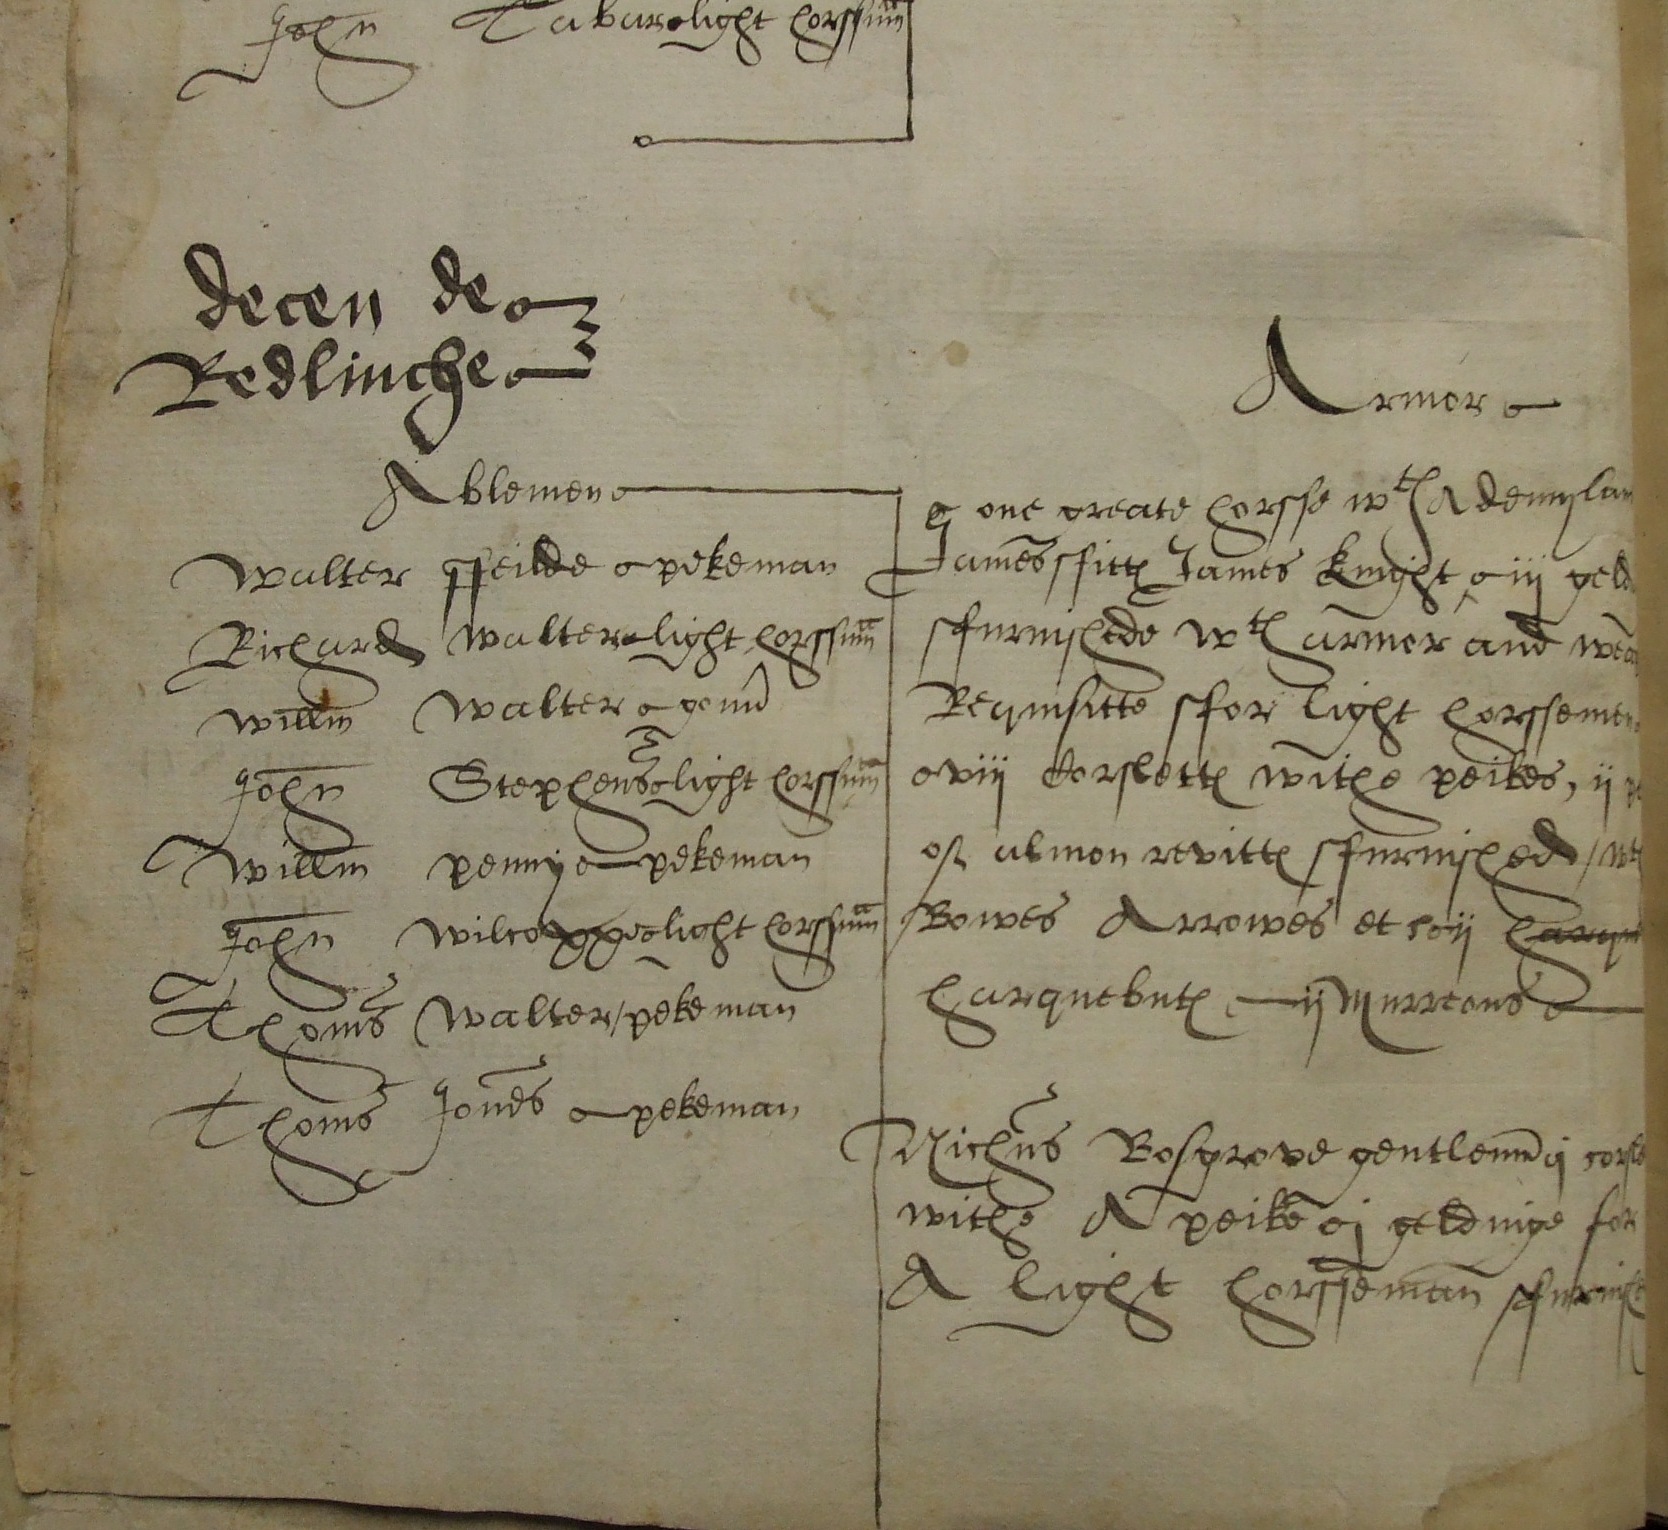 John Tabar light horssman
decen de
Redlinche
Ablemen
Walter ffeilde pekeman
Richard Walter light horssman
Willm Walter gonn
John Stephens light horssman
Willm penny pekeman
John Wilcoxxe light horssman
Thoms Walter / pekeman
Thoms Jones pekeman
Armor
one greate horsse wth A demylan
James ffitz James knight iij geld
ffurnishede wth armor and wea
Requisitte ffor light horssemen
viij Corslettes withe peikes, ij
of almon revittes ffurnished / wth
Bowes Arrowes et ij harqu
harquebutes ij Murreons
Nichus Bosgrove gentleman ij corsle
withe A peike j geldinge for
A light horsseman ffurnish